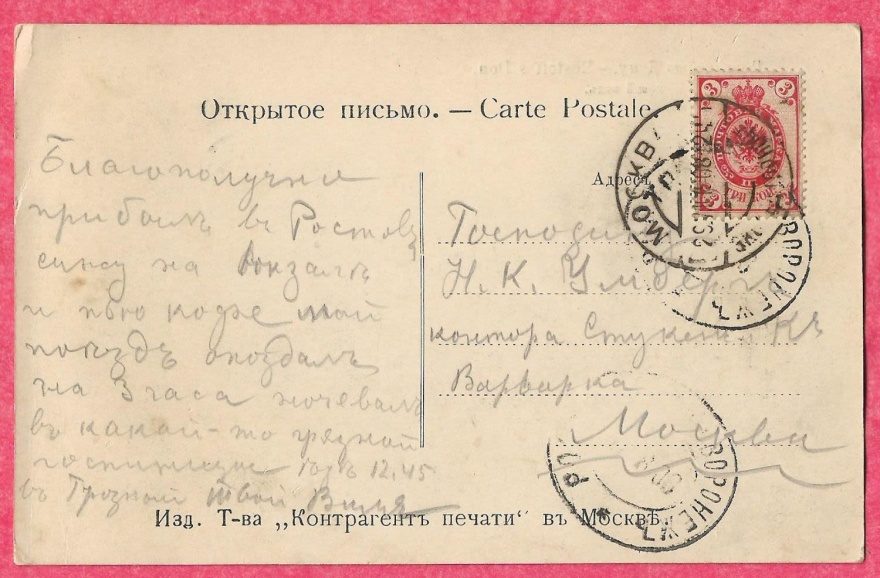 Открытое письмо. — Carte Postale.
Адресъ
Благополучно
прибылъ въ Ростовъ
сижу на вокзалѣ
и пью кофе мой
поѣздъ опоздалъ
на 3 часа ночевалъ
въ какой-то грязной
гостиницѣ 12.45
въ Грозный Твой
Господину
Н. К.
контора Стукенъ и Кº
Варварка
Москва
МОСКВА
ВОРОНЕЖЪ
РО
ВОРОНЕЖЪ
3 3
Изд. Т-ва „Контрагентъ печати“ въ Москвѣ.